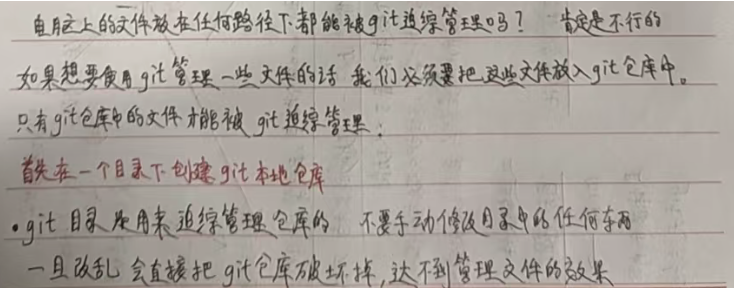 电脑上的文件放在任何路径下都能被git追综管理吗？ 肯定是不行的
如果想要使用git管理一些文件的话 我们必须要把这些文件放入git仓库中。
只有git仓库中的文件才能被git追综管理。
首先在一个目录下创建git本地仓库
•git 目录是用来追综管理仓库的 不要手动修改目录中的任何东西
一旦改乱 会直接把git仓库破坏掉,达不到管理文件的效果